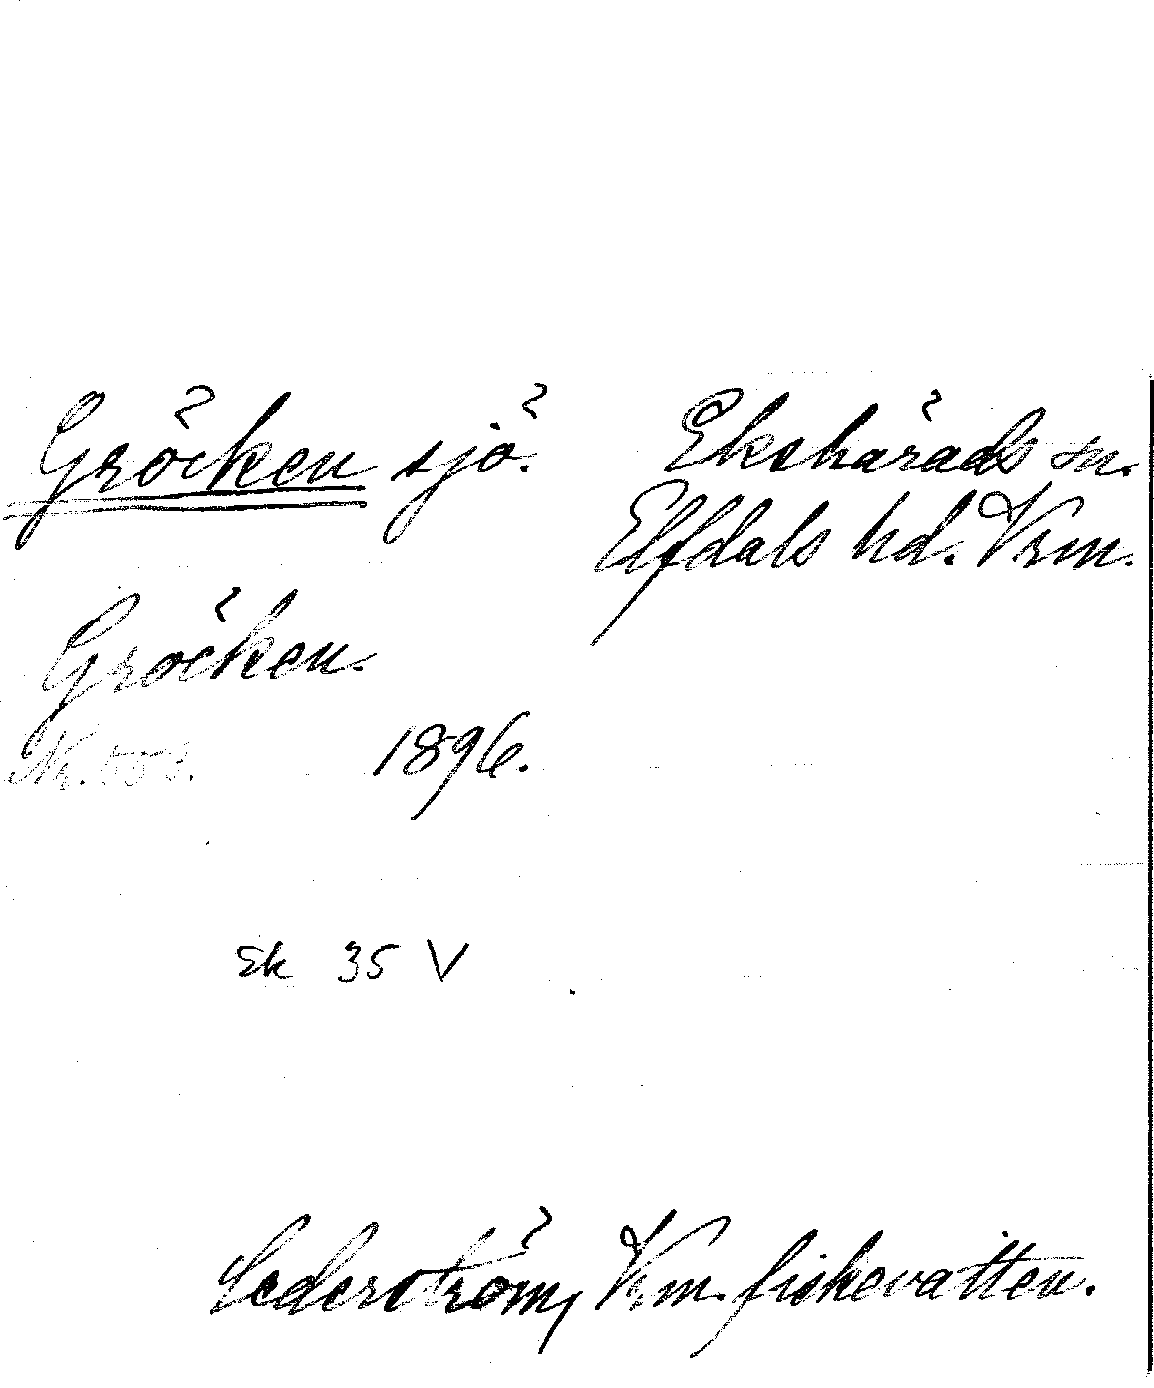 Gröcken sjö. Ekshärads sn.
Elfdals hd. Vrm.
Gröcken.
Nr. 553. 1896.
Ek 35 V
Cederström, Vrm. fiskevatten.